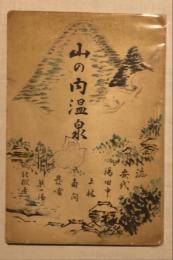 山の内温泉
安代
湯田中
上林
角間
熊の湯
地獄谷